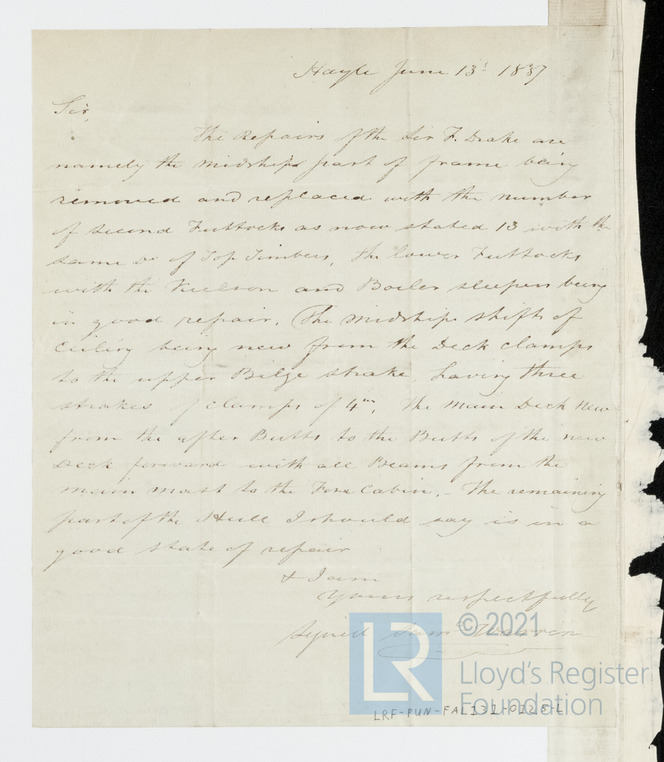 Hayle June 13th 1837
Sir,
The Repairs of the Sir F. Drake are
namely the midships part of frame being
removed and replaced with the number
of second Futtocks as now stated 13 with the
same do of Top Timbers, the Lower Futtocks
with the Keelson and Boiler sleepers being
in good repair. The midships shifts of
Ceiling being new from the Deck Clamps
to the upper Bilge strake, having three
strakes of clamps of 4 in, the Main Deck New
from the after Butts to the Butts of the new
Deck forward with all Beams from the
main mast to the Fore Cabin. - The remaining
part of the Hull I should say is in a
good state of repair
& I am
Yours respectfully
Signed
© 2021
LR
Lloyd's Register
Foundation
LRF-PUN-FAL132-0228-L